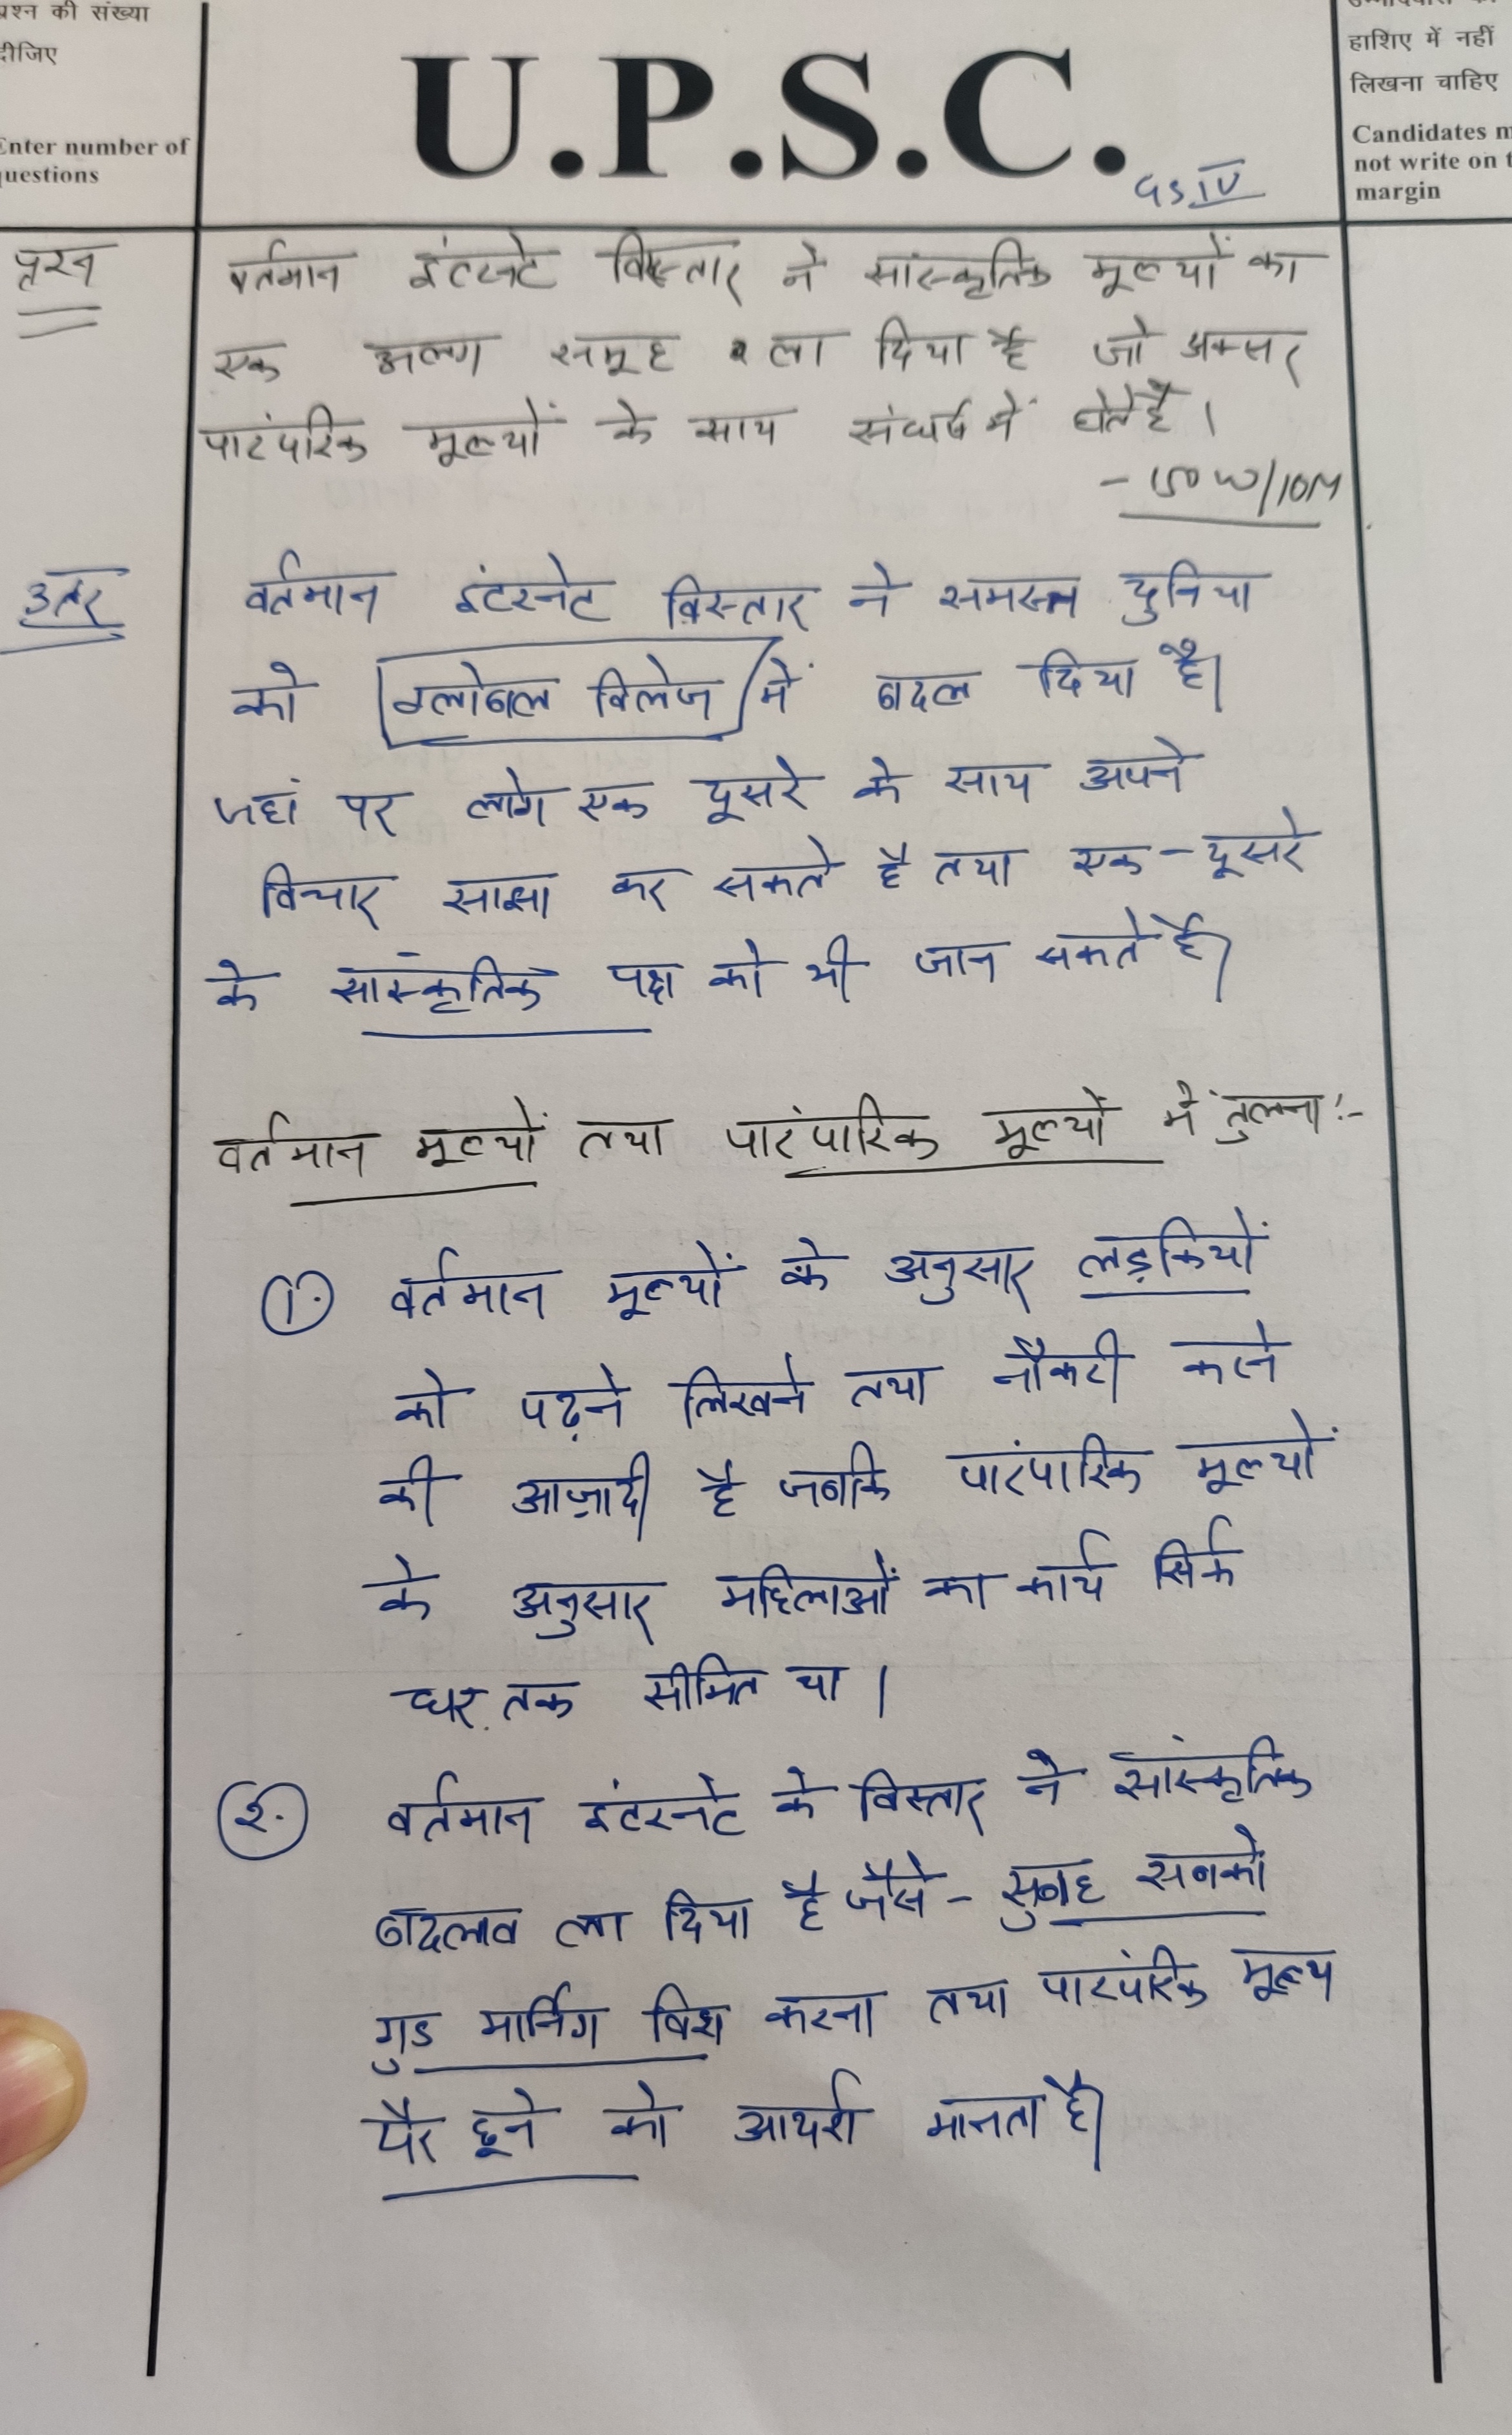 प्रश्न की संख्या
दीजिए
Enter number of
questions
U.P.S.C.
GS IV
हाशिए में नहीं
लिखना चाहिए
Candidates m
not write on t
margin
प्रश्न
वर्तमान इंटरनेट विस्तार ने सांस्कृतिक मूल्यों का
एक अलग समूह ला दिया है जो अक्सर
पारंपरिक मूल्यों के साथ संघर्ष में होते है।
- 150 W/10M
उत्तर
वर्तमान इंटरनेट विस्तार ने समस्त दुनिया
को ग्लोबल विलेज में बदल दिया है।
जहां पर लोग एक दूसरे के साथ अपने
विचार साझा कर सकते है तथा एक-दूसरे
के सांस्कृतिक पक्ष को भी जान सकते है।
वर्तमान मूल्यों तथा पारंपारिक मूल्यों में तुलना:-
1. वर्तमान मूल्यों के अनुसार लड़कियों
को पढ़ने लिखने तथा नौकरी करने
की आज़ादी है जबकि पारंपारिक मूल्यों
के अनुसार महिलाओं का कार्य सिर्फ
घर तक सीमित था।
2. वर्तमान इंटरनेट के विस्तार ने सांस्कृतिक
बदलाव ला दिया है जैसे - सुबह सबको
गुड मार्निग विश करना तथा पारंपरिक मूल्य
पैर छूने को आदर्श मानता है।